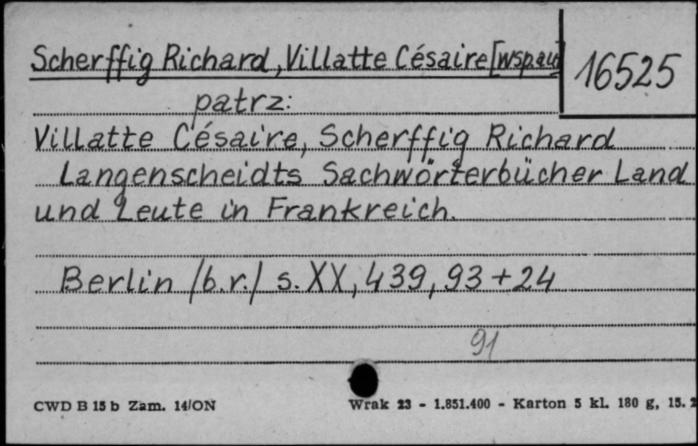 Scherffig Richard, Villatte Césaire [wsp.au]
16525
patrz:
Villatte Césaire, Scherffig Richard
Langenscheidts Sachwörterbücher Land
und Leute in Frankreich.
Berlin /b.r./ s. XX, 439, 93 + 24
91
CWD B 15 b Zam. 14/ON
Wrak 23 - 1.851.400 - Karton 5 kl. 180 g, 15.